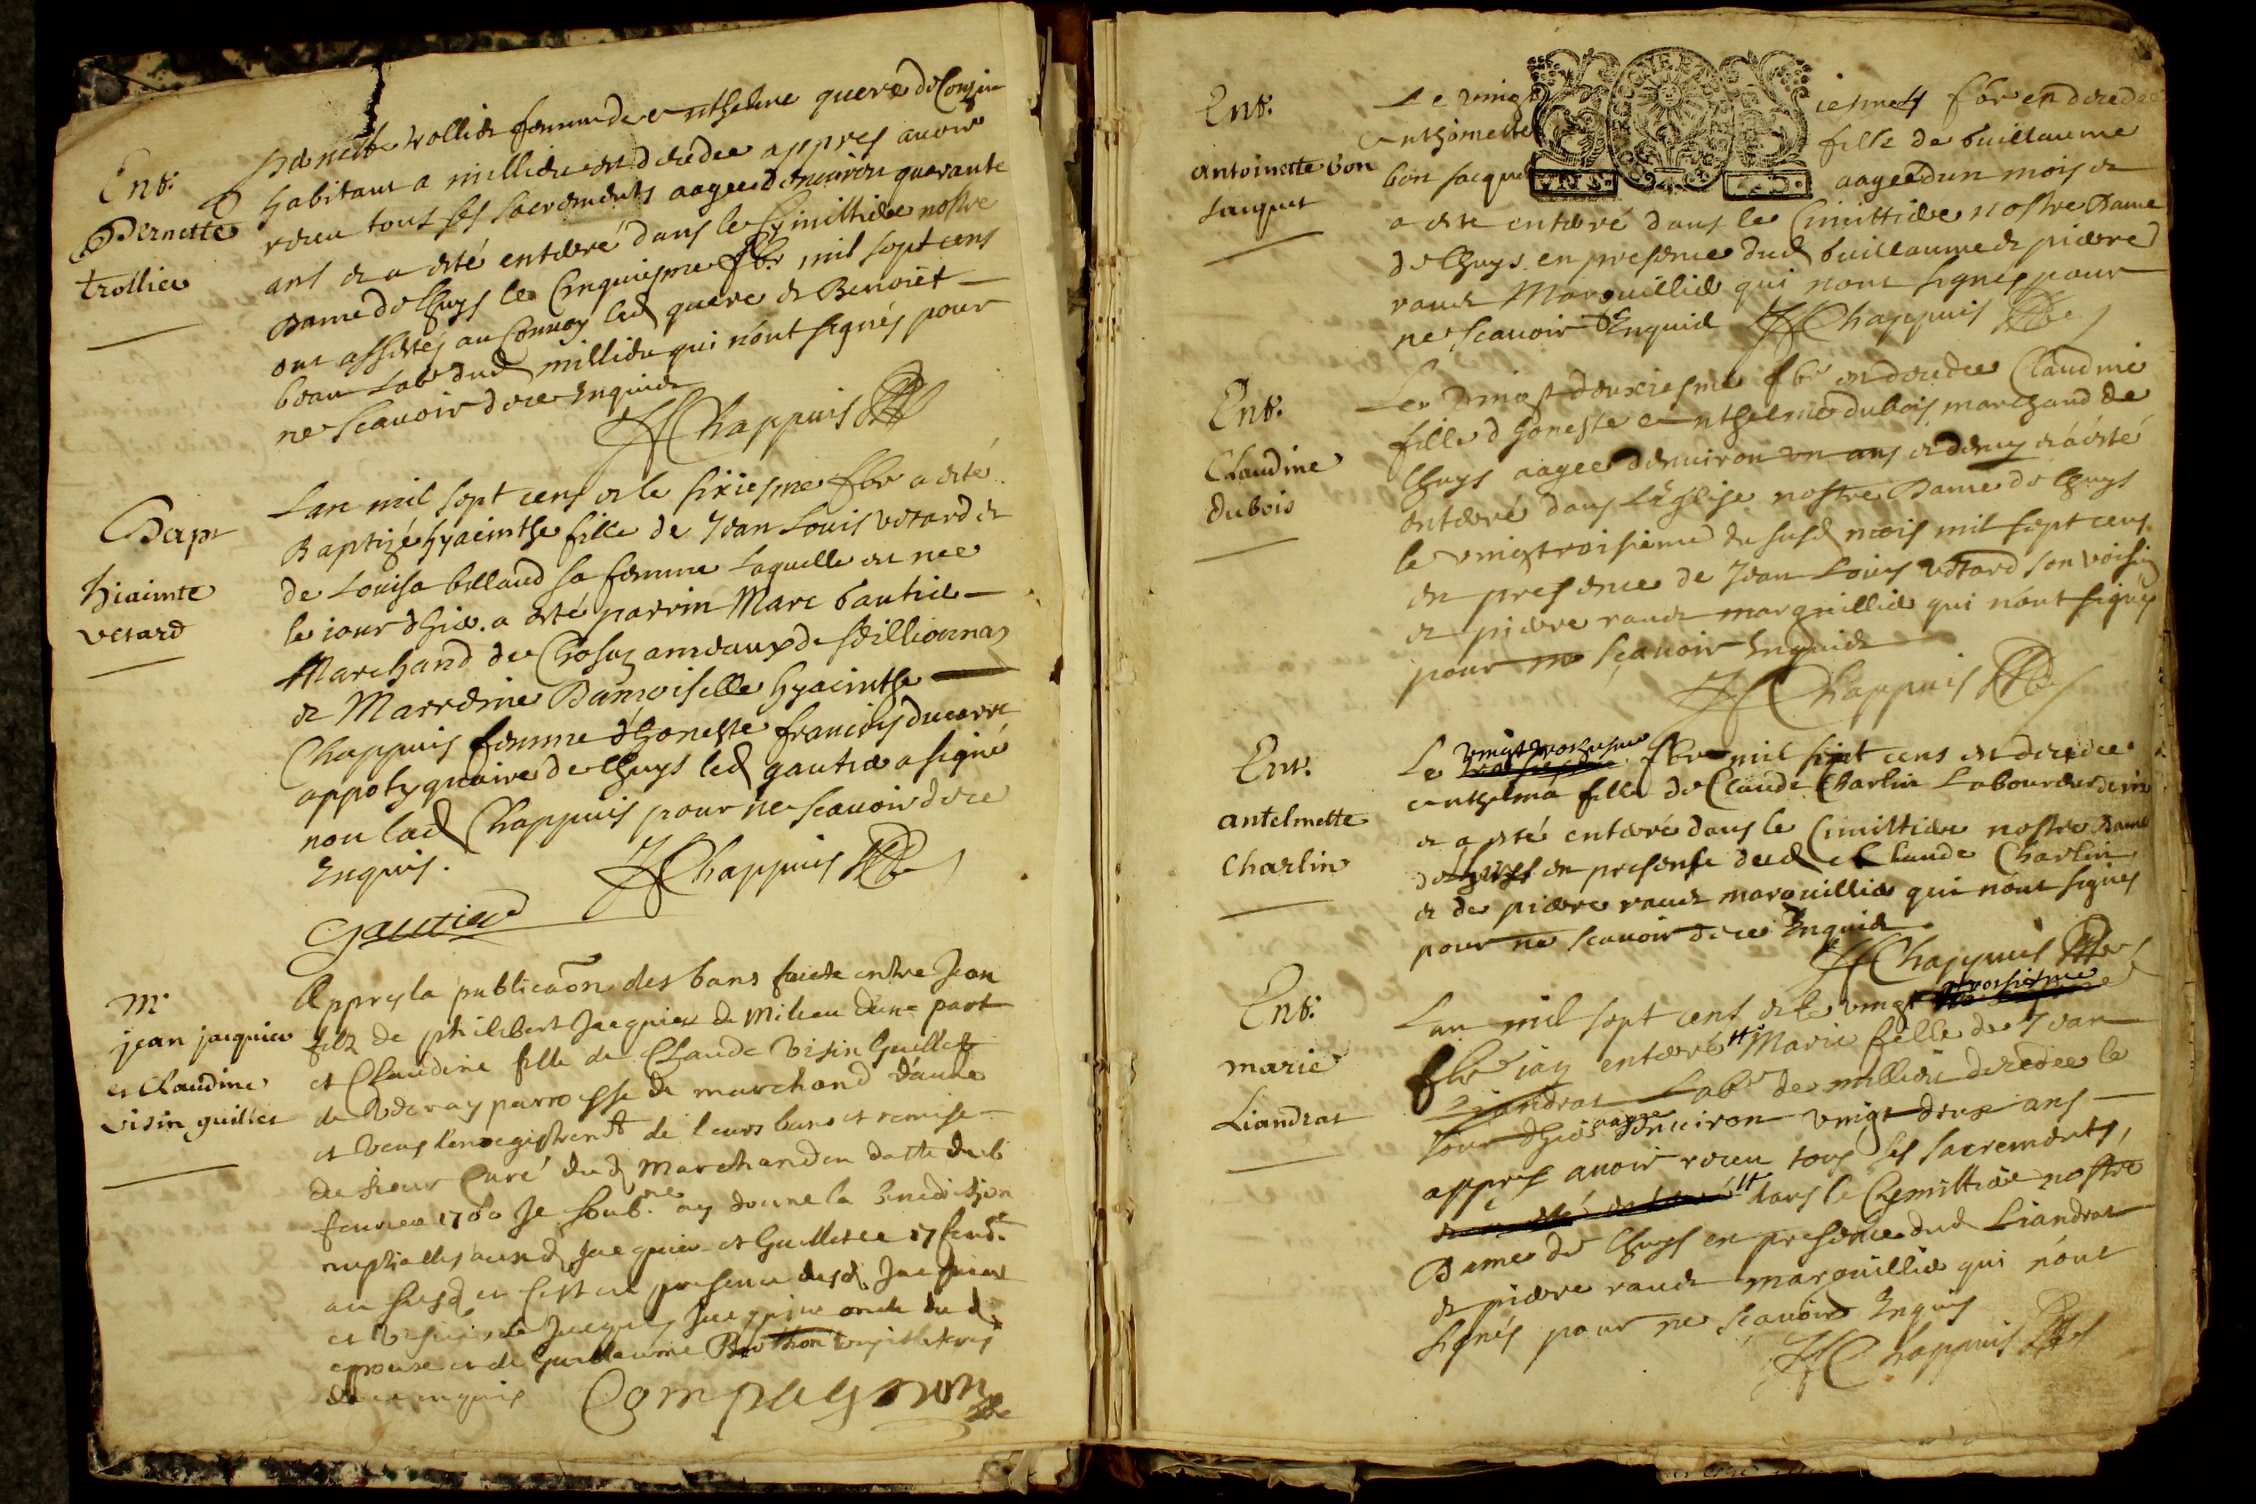 Ent.
Pernette
trollier
Pernette trollier femme de anthelme quere de Conzieu
habitant a millieu est decedee appres avoir
receu tous ses sacrements aagee denviron quarante
ans et a esté enterré dans le Cymittiere nostre
Dame de Lhuys le Cinquiesme fbr mil sept cens
ont assistés au Convoy led quere et Benoiet
beau Lab dud millieu qui nont signés pour
ne scavoir de ce Enquis
Chappuis Pbre
Bapt
hiainte
vetard
Lan mil sept cens et le sixiesme fbr a esté
Baptizé hyacinthe fille de Jean Louis vetard et
de Louise billaud sa femme Laquelle est nee
le jour dhier. a esté parrin Marc Gautier
Marchand de
et Marreine Damoiselle hyacinthe
Chappuis femme dhoneste francois ducarre
appotyquaire de Lhuys led gautier a signé
non lad Chappuis pour ne scavoir de ce
Enquis.
Chappuis Pbre
Gautier
M.
jean jacquier
et Claudine
visin guillet
Appres la publicaôn des bans faicte entre Jean
filz de philibert Jacquier de Milieu dune part
et Claudine fille de Claude Visin Guillet
de parroisse de marchand dautre
et veus lenregistremt de leurs bans et remise
du sieur Curé dud Marchand en datte du 6
fevrier 1700 Je soub.né ay donne la benediction
nuptialle ausd Jacquier et Guillet ce 17 fevr.
an susd en presence desd. Jacquier
et Visin de Jacques Jacquier oncle dud
epouse et de Guillaume Berthon
de ce enquis Compagnon
Pbre
Ent.
antoinette bon
Jacquet
Le vingt iesme fbr est decedee
anthoinette fille de buillaume
bon Jacquet aagee dun mois et
a este enterré dans le Cimittiere nostre Dame
de Lhuys en presence dud buillaume et pierre
ravet Marguillier qui nont signés pour
ne scavoir de Enquis Chappuis Pbre
Ent.
Claudine
dubois
Le vingt deuxiesme fbr est decedee Claudine
fille dhoneste anthelme dubois marchand de
Lhuys aagee denviron un ans et demy et a esté
enterré dans Léglise nostre Dame de Lhuys
le vingtroisieme du susd mois mil sept cens
en presence de Jean Louis vetard son voisin
et pierre ravet marguillier qui nont signés
pour ne scavoir Enquis
Chappuis Pbre
Ent.
antelmette
Charlin
Le vingt troisiesme fbr mil sept cens est decedee
anthelma fille de Claude Charlin Laboureur
et a esté enterré dans le Cimittiere nostre Dame
de Lhuys en presense dud Claude Charlin
et de pierre ravet marguillier qui nont signés
pour ne scavoir de ce Enquis
Chappuis Pbre
Ent.
marie
Liandrat
Lan mil sept cens et le vingt troisiesme
fbr iay enterré Marie fille de Jean
Liandrat Lab de millieu decedee le
Jour dhier aagee denviron vingt deux ans
appres avoir receu tous ses sacrements,
dans le Cymittiere nostre
Dame de Lhuys en presence dud Liandrat
et pierre ravet marguillier qui nont
signés pour ne scavoir Enquis
Chappuis Pbre